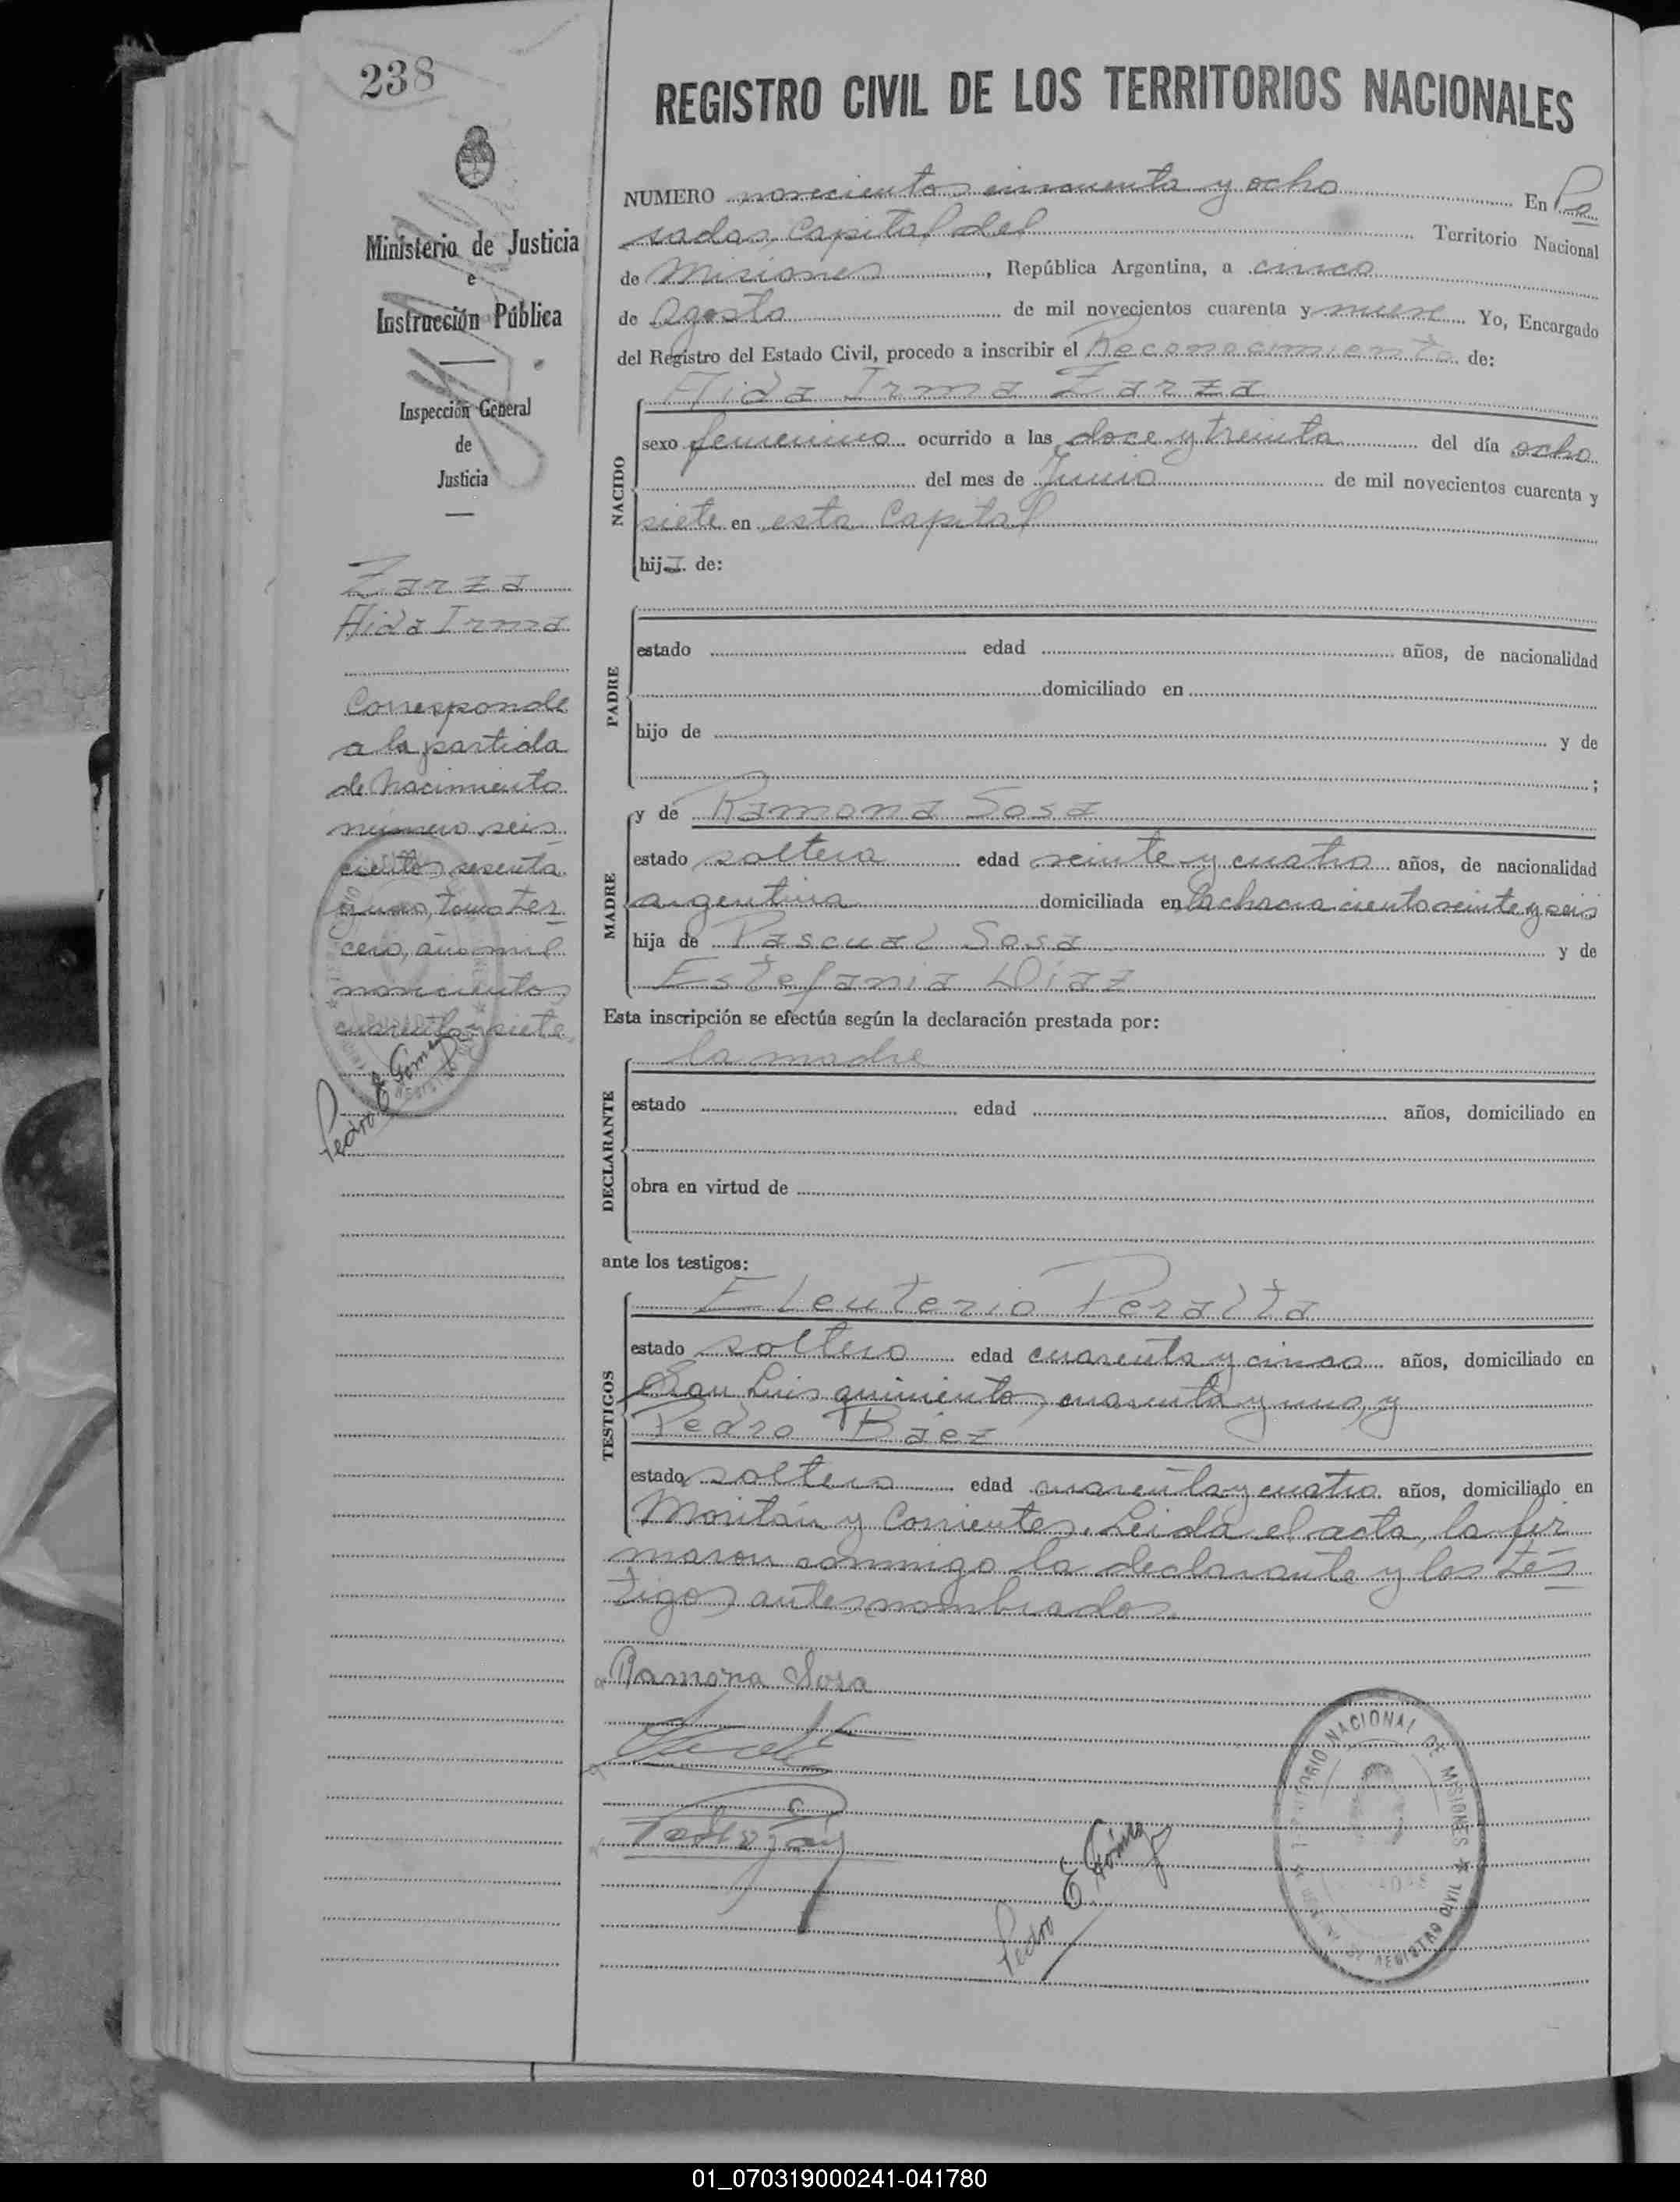 238
REGISTRO CIVIL DE LOS TERRITORIOS NACIONALES
Ministerio de Justicia
e
Instrucción Pública
Inspección General
de
Justicia
Zarza
Aida Irma
Corresponde
a la partida
de nacimiento
número seis
cientos sesenta
y uno, tomo ter
cero, año mil
novecientos
cuarenta y siete
Pedro E Gómez
NUMERO novecientos cincuenta y ocho En Po
sadas, Capital del Territorio Nacional
de Misiones, República Argentina, a cinco
de Agosto de mil novecientos cuarenta y nueve Yo, Encargado
del Registro del Estado Civil, procedo a inscribir el Reconocimiento de:
Aida Irma Zarza
NACIDO
sexo femenino ocurrido a las doce y treinta del día ocho
del mes de Junio de mil novecientos cuarenta y
siete en esta Capital
hija de:
PADRE
estado edad años, de nacionalidad
domiciliado en
hijo de y de
;
MADRE
y de Ramona Sosa
estado soltera edad veinte y cuatro años, de nacionalidad
argentina domiciliada en la chacra ciento veinte y seis
hija de Pascual Sosa y de
Estefania Diaz
Esta inscripción se efectúa según la declaración prestada por:
DECLARANTE
la madre
estado edad años, domiciliado en
obra en virtud de
ante los testigos:
TESTIGOS
Eleuterio Peralta
estado soltero edad cuarenta y cinco años, domiciliado en
San Luis quinientos cuarenta y uno, y
Pedro Báez
estado soltero edad cuarenta y cuatro años, domiciliado en
Moritán y Corrientes. Leida el acta, la fir
maron conmigo la declarante y los tes
tigos antes nombrados.
Ramona Sosa
Pedro E Gómez
TERRITORIO NACIONAL DE MISIONES
REGISTRO CIVIL
01_070319000241-041780